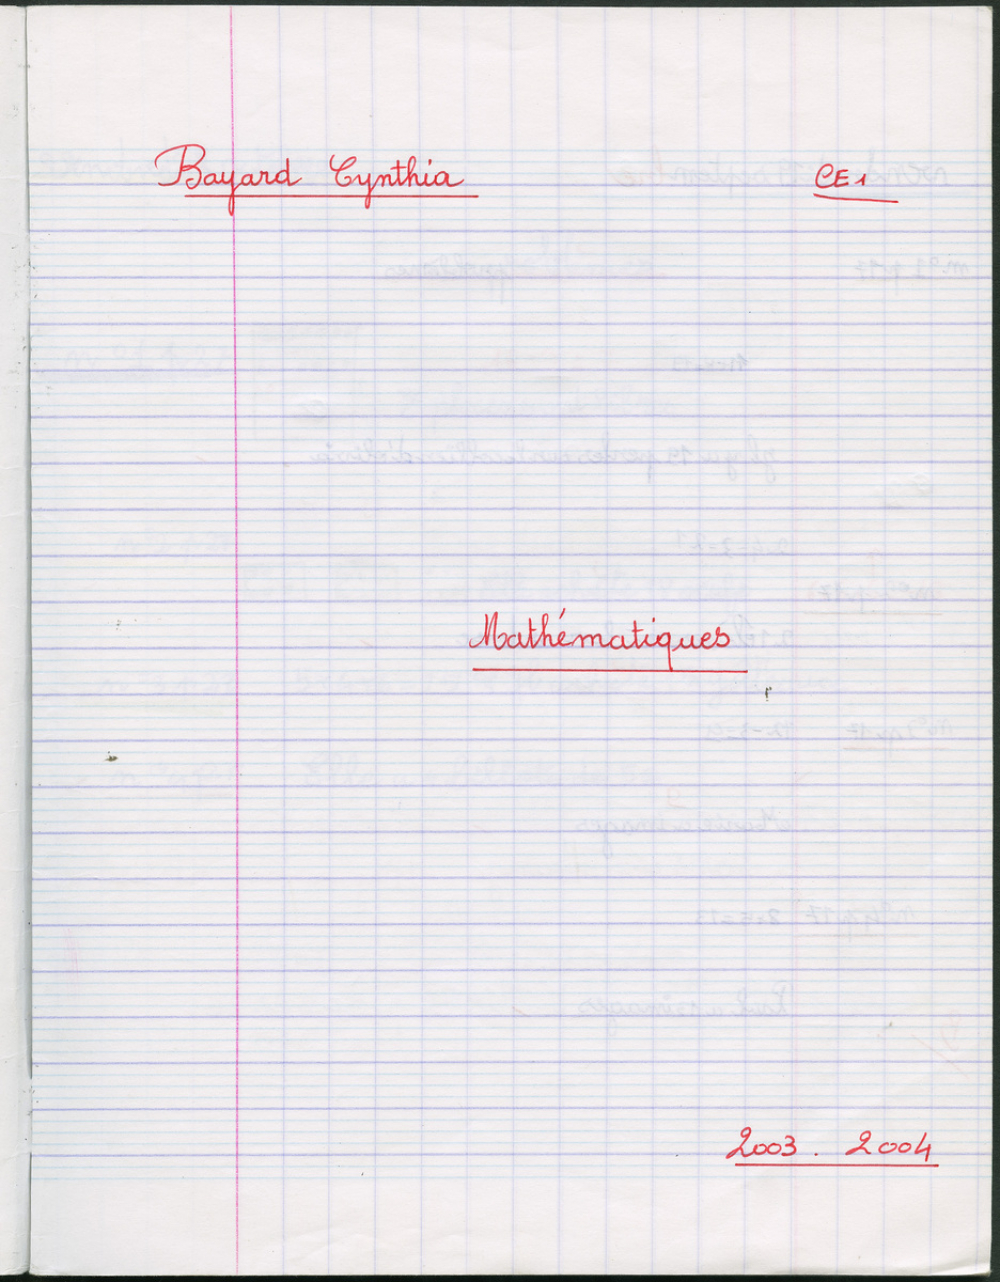 Bayard Cynthia CE1
Mathématiques
2003. 2004